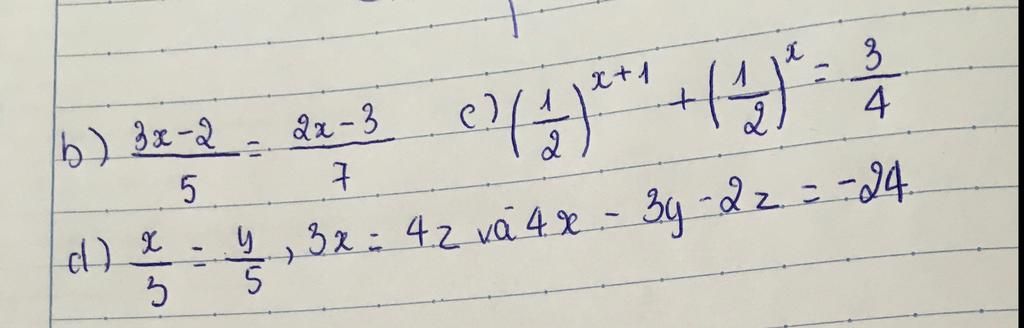 b) \frac{3x-2}{5} = \frac{2x-3}{7} c) \left(\frac{1}{2}\right)^{x+1} + \left(\frac{1}{2}\right)^{x} = \frac{3}{4}
d) \frac{x}{3} = \frac{y}{5}, 3x = 4z và 4x - 3y - 2z = -24